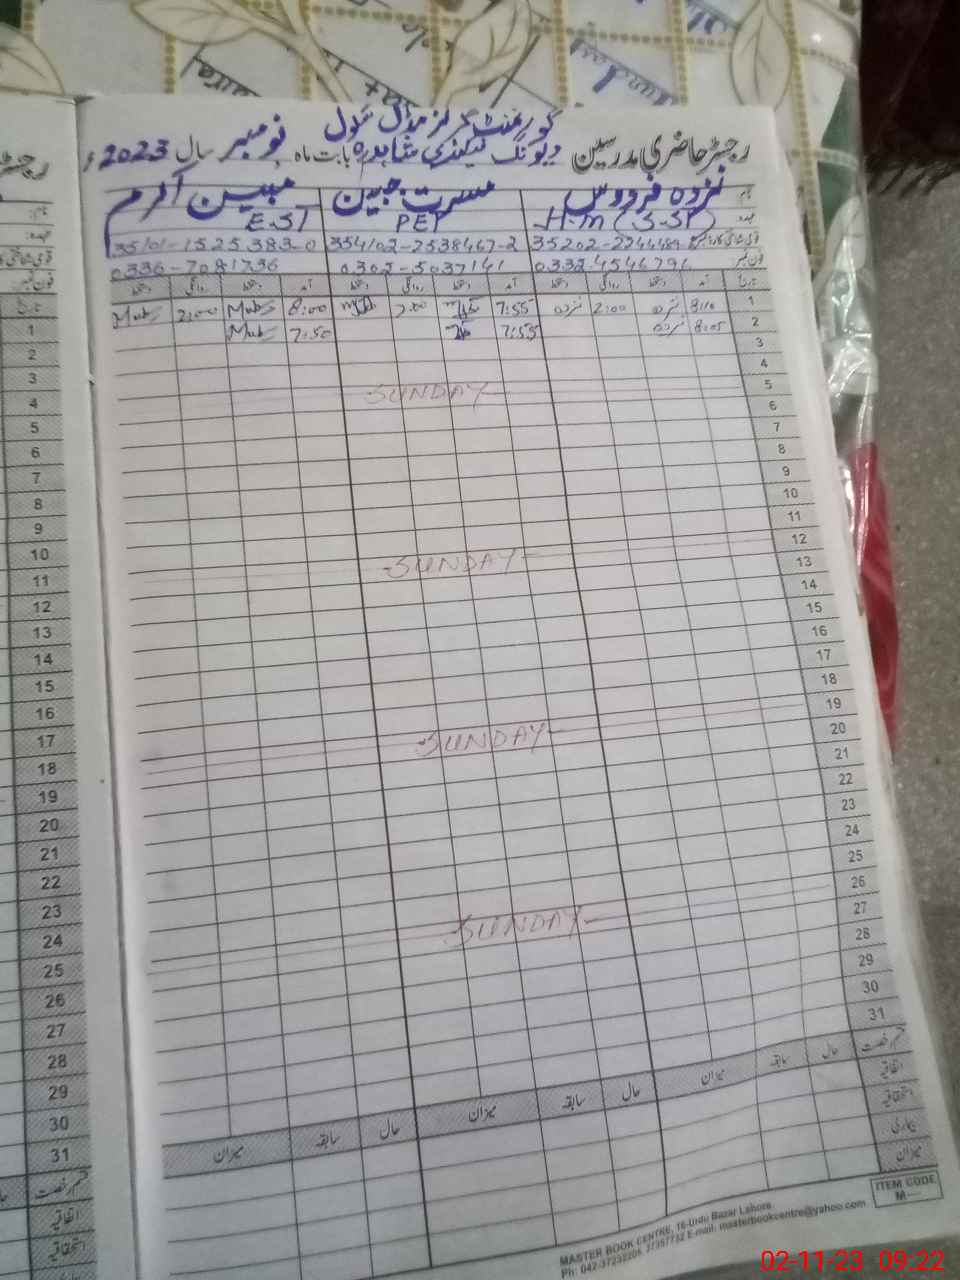 گورنمنٹ گرلز مڈل سکول
رجسٹر حاضری مدرسین شاہدرہ بابت ماہ نومبر سال 2023ء
نام: نزدہ فردوس مسرت جبین مبین اکرم
عہدہ: H.m (S.ST) PET E.ST
35202- 354102-2538467-2 35101-1525383-0
فون نمبر: 0302-5037141 0336-7081736
تاریخ آمد دستخط روانگی دستخط آمد دستخط روانگی دستخط آمد دستخط روانگی دستخط
1 8:10 نزدہ 2:00 نزدہ 7:55 2:00 8:00 2:00
2 8:05 نزدہ 7:55 7:50
3
4
5 SUNDAY
6
7
8
9
10
11
12 SUNDAY
13
14
15
16
17
18
19 SUNDAY
20
21
22
23
24
25
26 SUNDAY
27
28
29
30
31
قسم رخصت حال سابقہ میزان حال سابقہ میزان حال سابقہ میزان
اتفاقیہ
استحقاقیہ
بیماری
میزان
ITEM CODE
M----
MASTER BOOK CENTRE, 16-Urdu Bazar Lahore
Ph: 042-37232205, 37357732 E-mail: masterbookcentre@yahoo.com
رجسٹر
نام:
عہدہ:
فون نمبر:
تاریخ
1
2
3
4
5
6
7
8
9
10
11
12
13
14
15
16
17
18
19
20
21
22
23
24
25
26
27
28
29
30
31
قسم رخصت
اتفاقیہ
استحقاقیہ
02-11-23 09:22